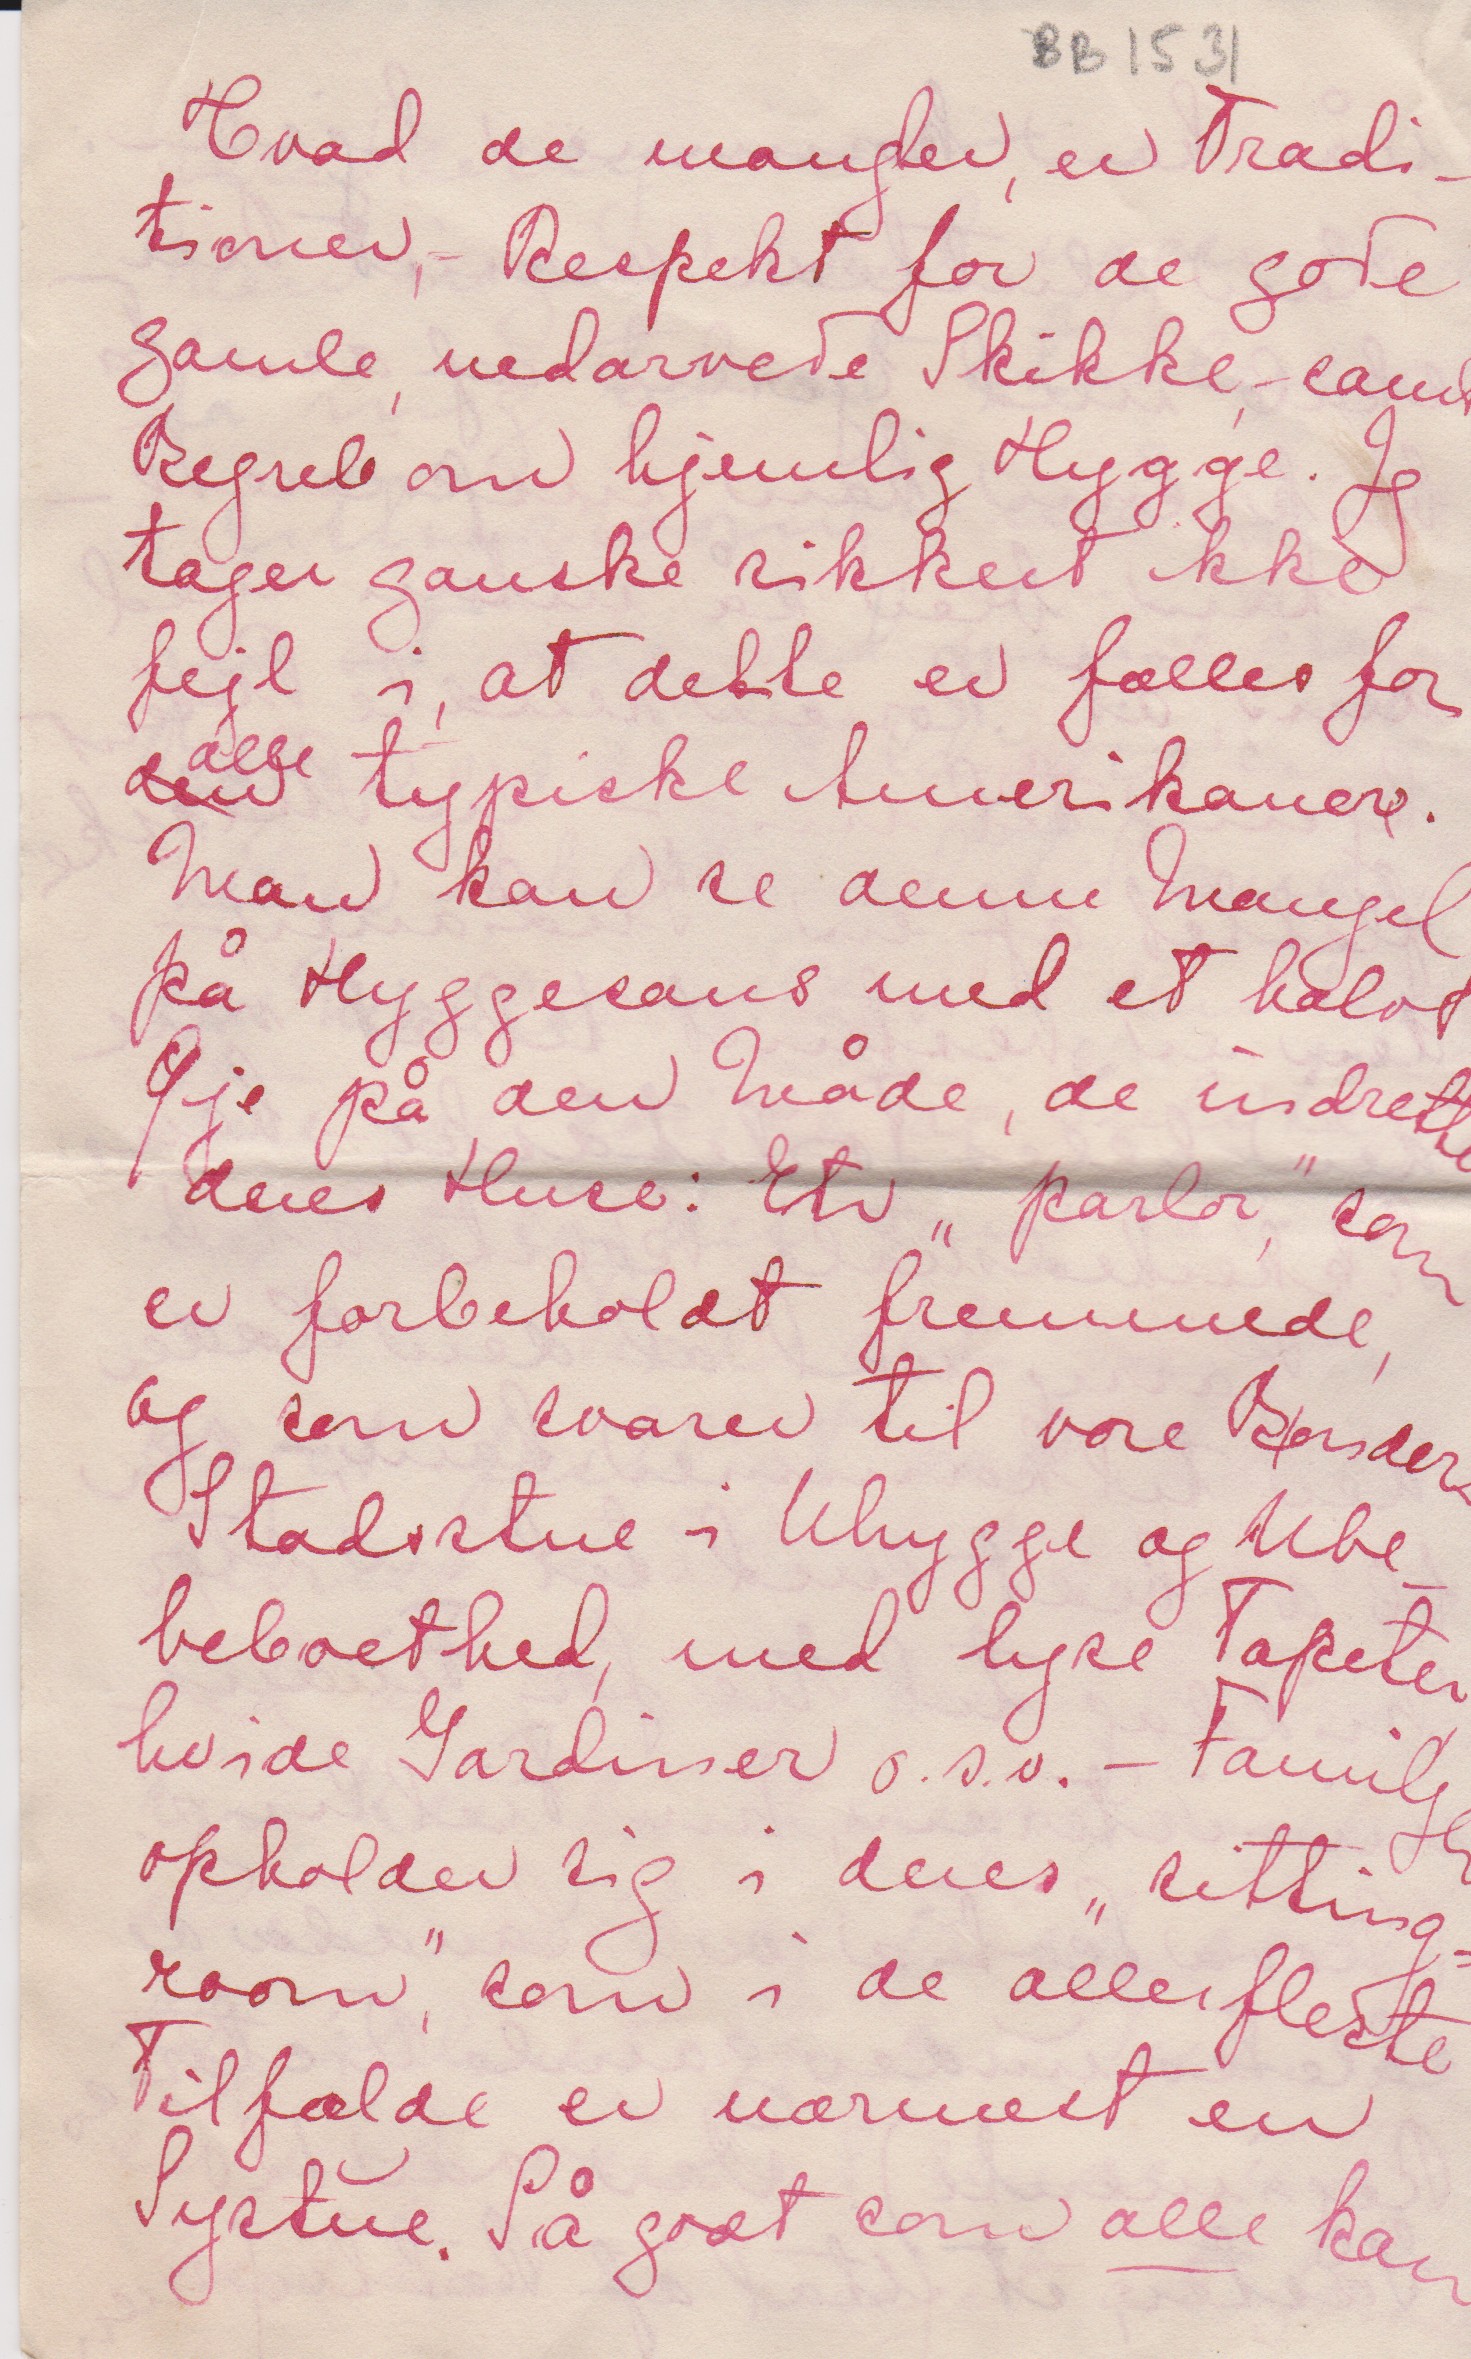 BB 1531
Hvad de mangler, er Tradi-
tioner, - Respekt for de gode
gamle, nedarvede Skikke, - samt
Begreb om hjemlig Hygge. Jeg
tager ganske sikkert ikke
fejl i, at dette er fælles for
alle typiske Amerikanere.
Man kan se denne Mangel
på Hyggesans med et halvt
Øje på den Måde, de indrette
deres Huse: Et „parlor," som
er forbeholdt fremmede,
og som svarer til vore Bønders
Stadsstue i Uhygge og Ube-
beboethed, med lyse Tapeter
hvide Gardiner o.s.v. - Familjen
opholder sig i deres „sitting-
room," som i de allerfleste
Tilfælde er nærmest en
Systue. Så godt som alle kan